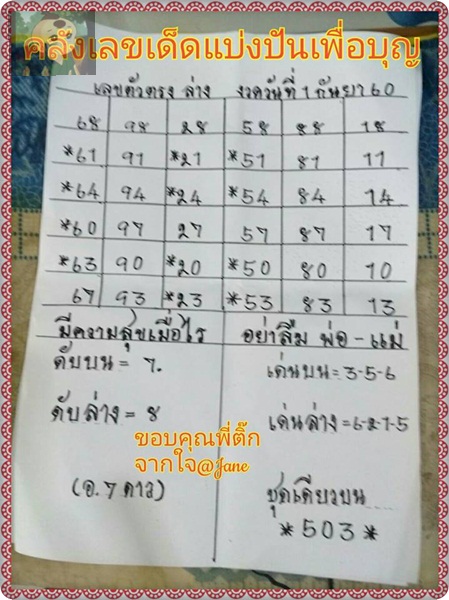 คลังเลขเด็ดแบ่งปันเพื่อบุญ
เลขตัวตรง ล่าง งวดวันที่ 1 กันยา 60
68 98 28 58 88 18
*61 91 *21 *51 81 11
*64 94 *24 *54 84 14
*60 97 27 57 87 17
*63 90 *20 *50 80 10
67 93 *23 *53 83 13
มีความสุขเมื่อไร อย่าลืม พ่อ - แม่
ดับบน = 7.
เด่นบน = 3-5-6
ดับล่าง = 8
เด่นล่าง = 6-2-1-5
ขอบคุณพี่ติ๊ก
จากใจ@Jane
(อ. 7 ดาว)
ชุดเดียวบน
*503*